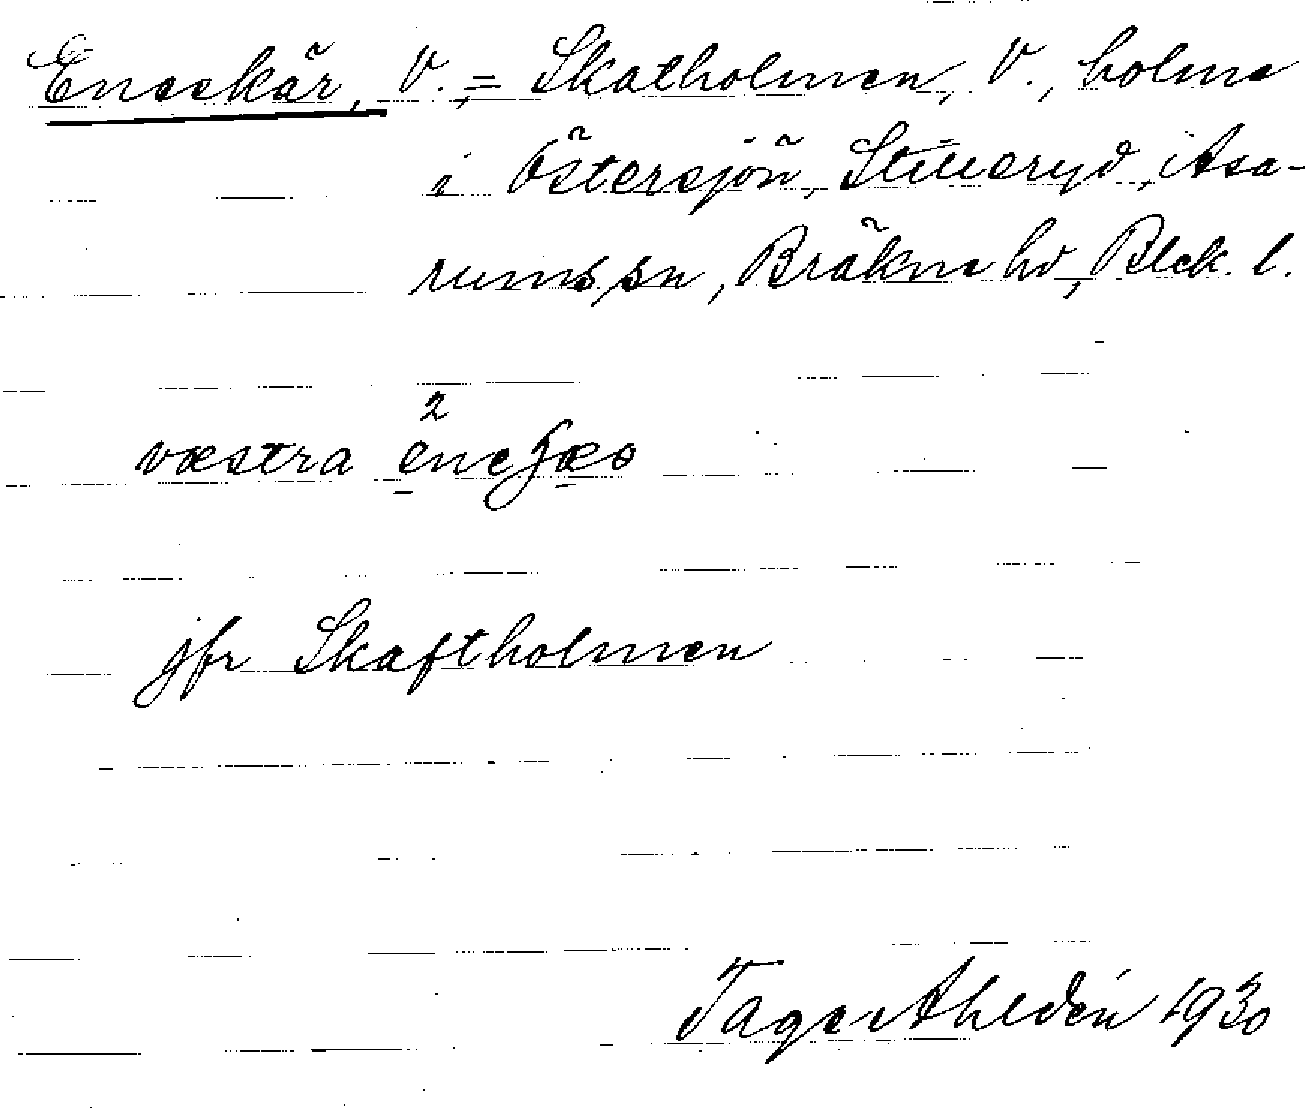 Eneskär, V., = Skatholmen, V., holme
i Östersjön, Stilleryd, Asa-
rums sn, Bräkne hd, Blek. l.
væstra
jfr Skaftholmen
Tage Ahldén 1930